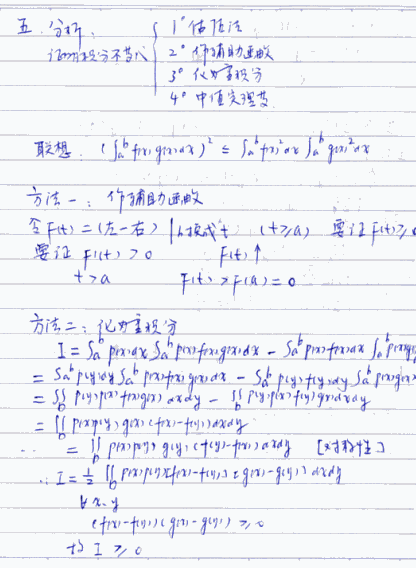 五. 分析:
证明积分不等式
1° 估值法
2° 作辅助函数
3° 化为重积分
4° 中值定理等
联想: (∫ₐᵇ f(x)g(x)dx)² ≤ ∫ₐᵇ f(x)²dx ∫ₐᵇ g(x)²dx
方法一: 作辅助函数
令 F(t) = (左-右) | b换成t (t≥a) 要证 F(t)≥0
要证 F'(t) > 0 F(t)↑
t>a F(t) > F(a) = 0
方法二: 化为重积分
I = ∫ₐᵇ p(x)dx ∫ₐᵇ p(x)f(x)g(x)dx - ∫ₐᵇ p(x)f(x)dx ∫ₐᵇ p(x)g(x)
= ∫ₐᵇ p(y)dy ∫ₐᵇ p(x)f(x)g(x)dx - ∫ₐᵇ p(y)f(y)dy ∫ₐᵇ p(x)g(x)
= ∬_D p(y)p(x)f(x)g(x)dxdy - ∬_D p(y)p(x)f(y)g(x)dxdy
= ∬_D p(x)p(y)g(x)(f(x)-f(y))dxdy
= ∬_D p(x)p(y)g(y)(f(y)-f(x))dxdy [对称性]
∴ I = ½ ∬_D p(x)p(y)[f(x)-f(y)][g(x)-g(y)]dxdy
∀ x.y
(f(x)-f(y))(g(x)-g(y)) ≥ 0
故 I ≥ 0